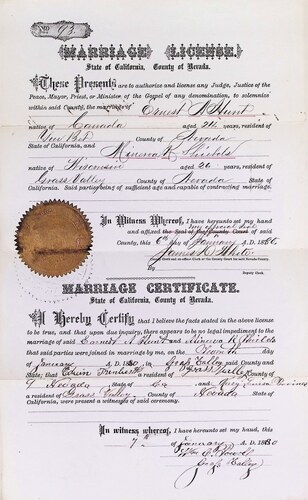 No 93
MARRIAGE LICENSE.
State of California, County of Nevada.
These Presents are to authorize and license any Judge, Justice of the
Peace, Mayor, Priest, or Minister of the Gospel of any denomination, to solemnize
within said County, the marriage of Ernest A Hunt
native of Canada aged 24 years, resident of
County of Nevada
State of California, and Minerva R Shields
native of Wisconsin aged 26 years, resident of
Grass Valley County of Nevada State of
California. Said parties being of sufficient age and capable of contracting marriage.
In Witness Whereof, I have hereunto set my hand
and affixed my official seal
County, this 6th day of January A. D. 1880.
James
Deputy Clerk.
MARRIAGE CERTIFICATE.
State of California, County of Nevada.
I Hereby Certify that I believe the facts stated in the above license
to be true, and that upon due inquiry, there appears to be no legal impediment to the
marriage of said Earnest A Hunt and Minerva R Shields
that said parties were joined in marriage by me, on the day
of January A. D. 1880 in Grass Valley said County and
State; that Edwin a resident of Grass Valley
County of Nevada State of Ca and Mary
a resident of Grass Valley County of Nevada State of
California, were present as witnesses of said ceremony.
In witness whereof, I have hereunto set my hand, this
7th January A. D. 1880
Grass Valley